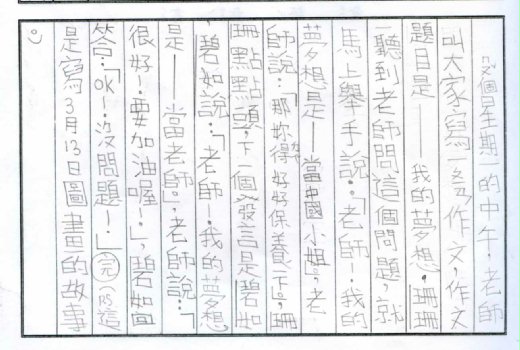 ㄆ個星期一的中午，老師
叫大家寫一ㄆ作文，作文
題目是——我的夢想，珊珊
一聽到老師問這個問題，就
馬上舉手說：「老師！我的
夢想是——當中國小姐。」老
師說：「那妳得好好保養一下。」珊
珊點點頭，下一個發言是碧如
，碧如說：「老師！我的夢想
是——當老師。」老師說：「
很好！要加油喔！」，碧如回
答：「OK！沒問題！」完（PS這
是寫3月13日圖畫的故事